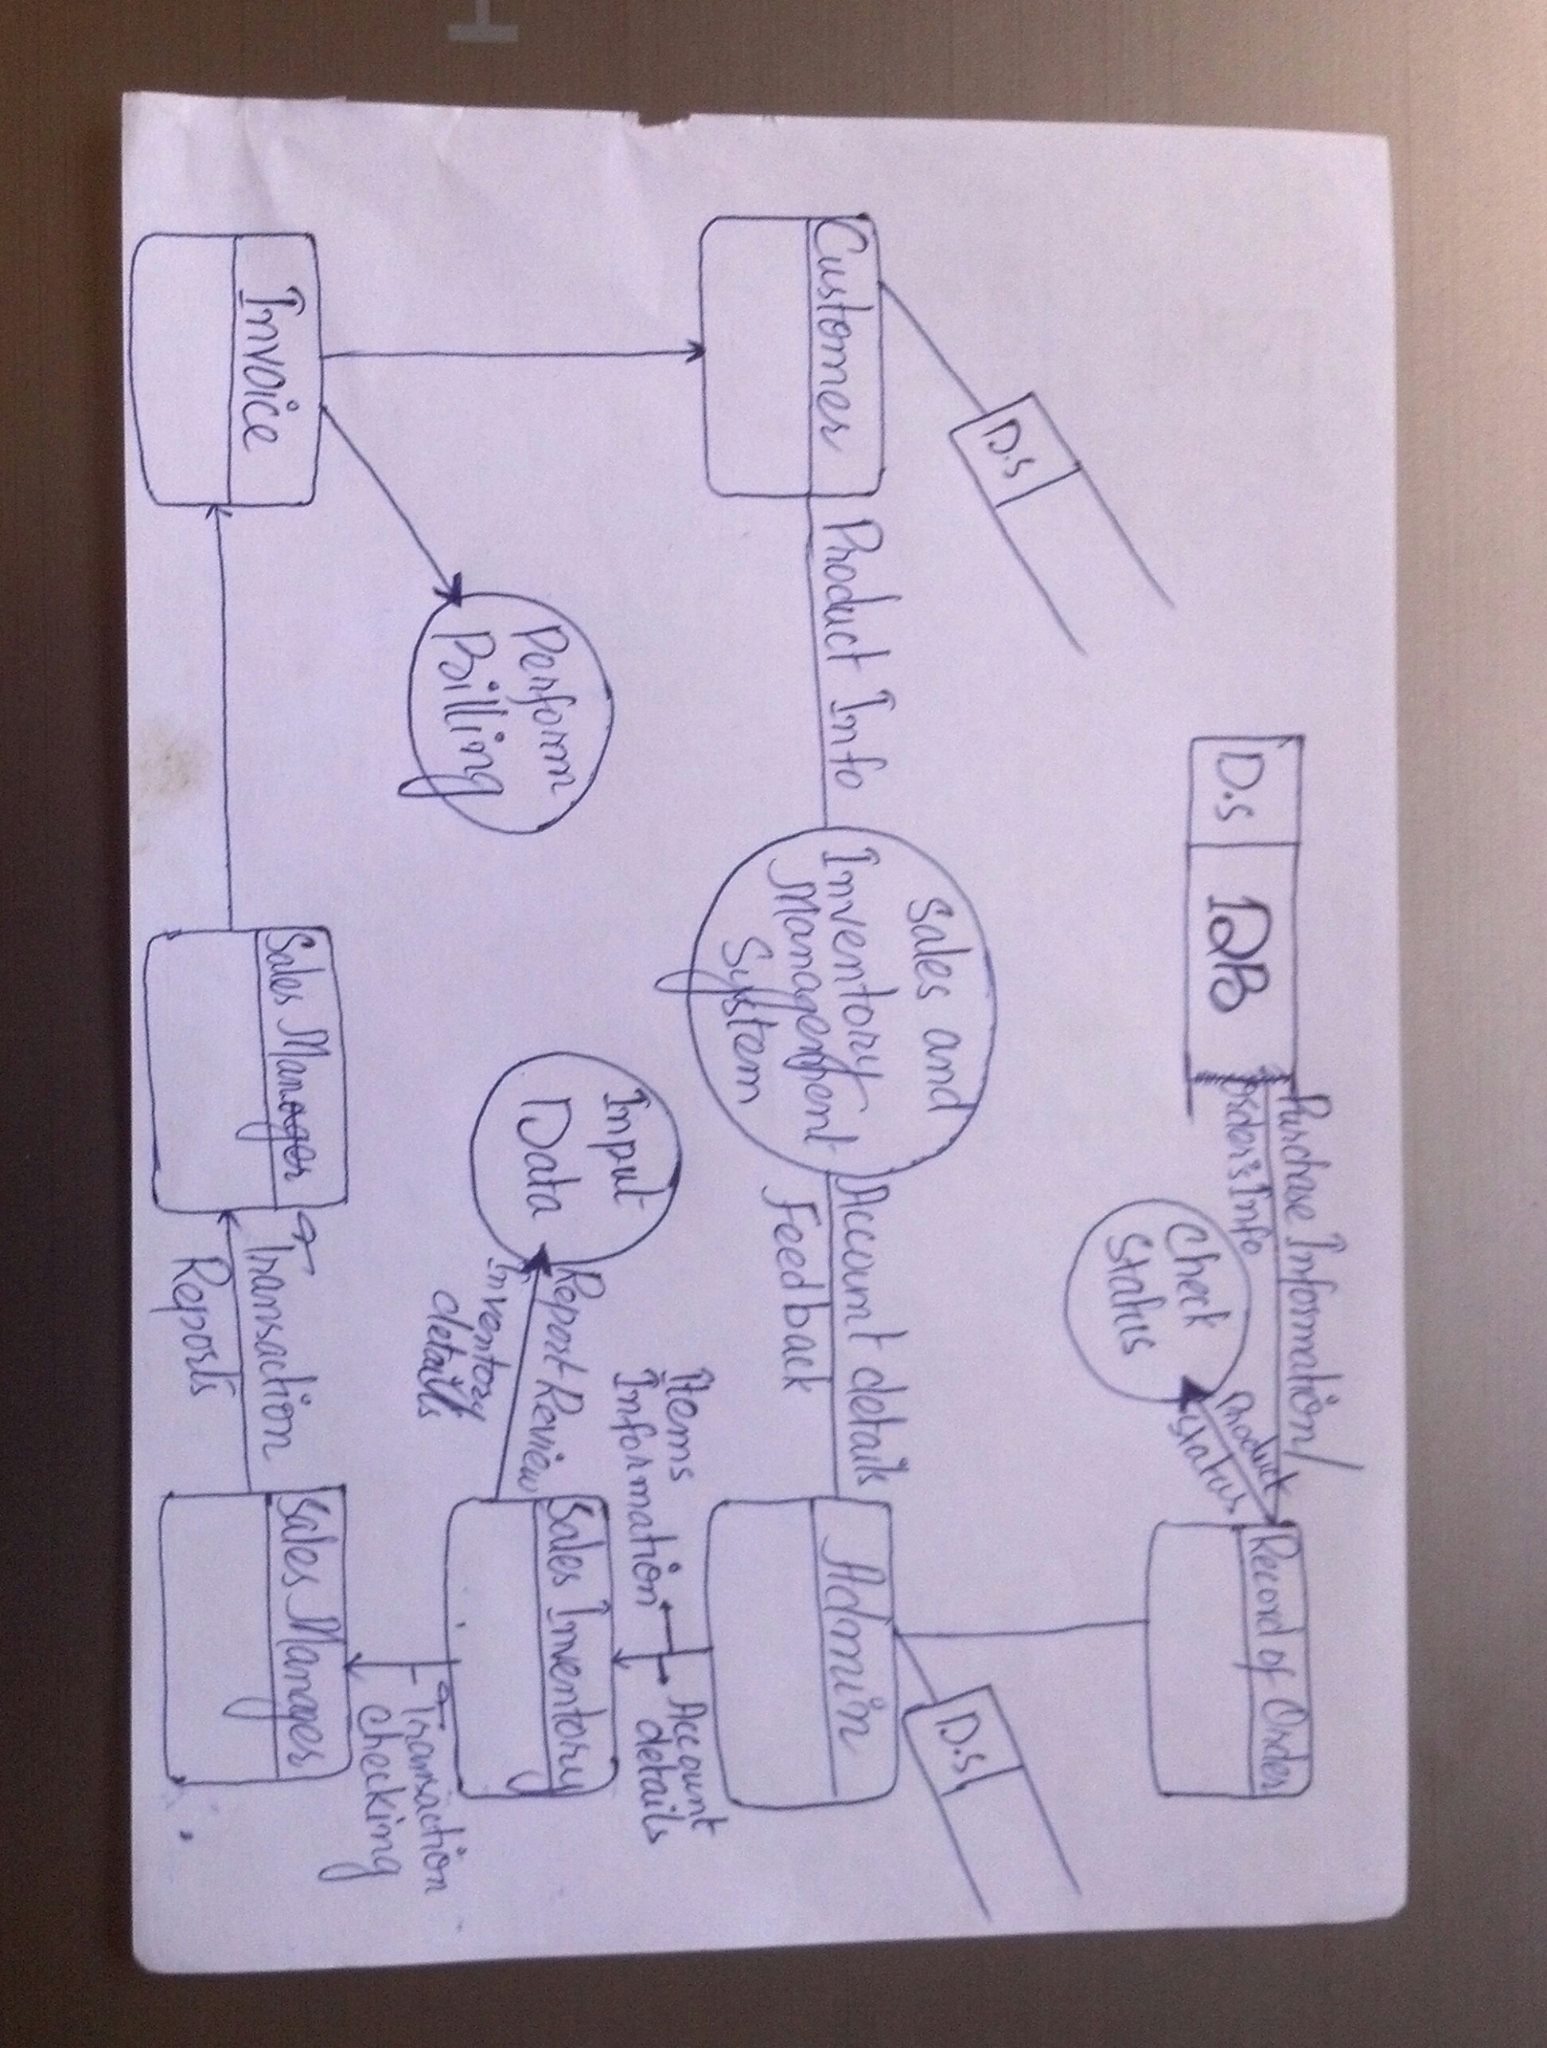 Purchase Information/
Order's Info
Record of Order
D.S
Product
Status
Check
Status
D.S
D.S
Sales and
Inventory
Management
System
Customer
Product Info
Account details
Feedback
Admin
Items
Information
Account
details
Input
Data
Report Review
Inventory
details
Sales Inventory
Perform
Billing
Transaction
checking
Invoice
Sales Manager
Transaction
Reports
Sales Manager